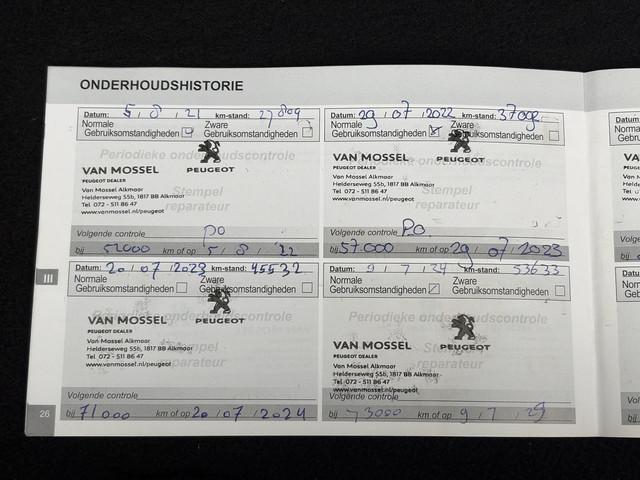 ONDERHOUDSHISTORIE
Datum: 5 / 8 / 21 km-stand: 27809
Normale Zware
Gebruiksomstandigheden Gebruiksomstandigheden
Periodieke onderhoudscontrole
VAN MOSSEL PEUGEOT
PEUGEOT DEALER
Van Mossel Alkmaar
Helderseweg 55b, 1817 BB Alkmaar
Tel 072 - 511 86 47
www.vanmossel.nl/peugeot
Stempel
reparateur
Volgende controle PO
bij 52000 km of op 5 / 8 / 22
Datum: 29 / 07 / 2022 km-stand:
Normale Zware
Gebruiksomstandigheden Gebruiksomstandigheden
Periodieke onderhoudscontrole
VAN MOSSEL PEUGEOT
PEUGEOT DEALER
Van Mossel Alkmaar
Helderseweg 55b, 1817 BB Alkmaar
Tel 072 - 511 86 47
www.vanmossel.nl/peugeot
Stempel
reparateur
Volgende controle Po.
bij 57.000 km of op 29 / 07 / 2023
III
Datum: 20 / 07 / 2023 km-stand: 45532
Normale Zware
Gebruiksomstandigheden Gebruiksomstandigheden
Periodieke onderhoudscontrole
VAN MOSSEL PEUGEOT
PEUGEOT DEALER
Van Mossel Alkmaar
Helderseweg 55b, 1817 BB Alkmaar
Tel 072 - 511 86 47
www.vanmossel.nl/peugeot
Stempel
reparateur
Volgende controle
bij 71000 km of op 20 / 07 / 2024
Datum: 9 / 7 / 24 km-stand: 53633
Normale Zware
Gebruiksomstandigheden Gebruiksomstandigheden
Periodieke onderhoudscontrole
VAN MOSSEL PEUGEOT
PEUGEOT DEALER
Van Mossel Alkmaar
Helderseweg 55b, 1817 BB Alkmaar
Tel 072 - 511 86 47
www.vanmossel.nl/peugeot
Stempel
reparateur
Volgende controle
bij 73000 km of op 9 / 7 /
26